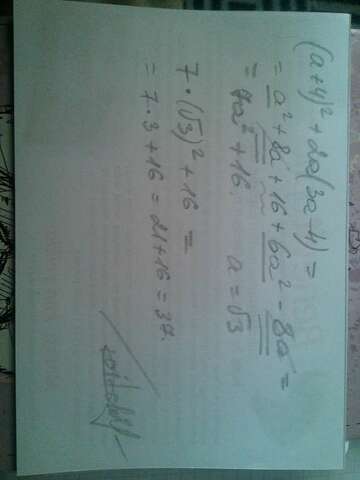 (a+4)² + 2a(3a-4) =
= a² + 8a + 16 + 6a² - 8a =
= 7a² + 16. a = √3
7 · (√3)² + 16 =
= 7 · 3 + 16 = 21 + 16 = 37.